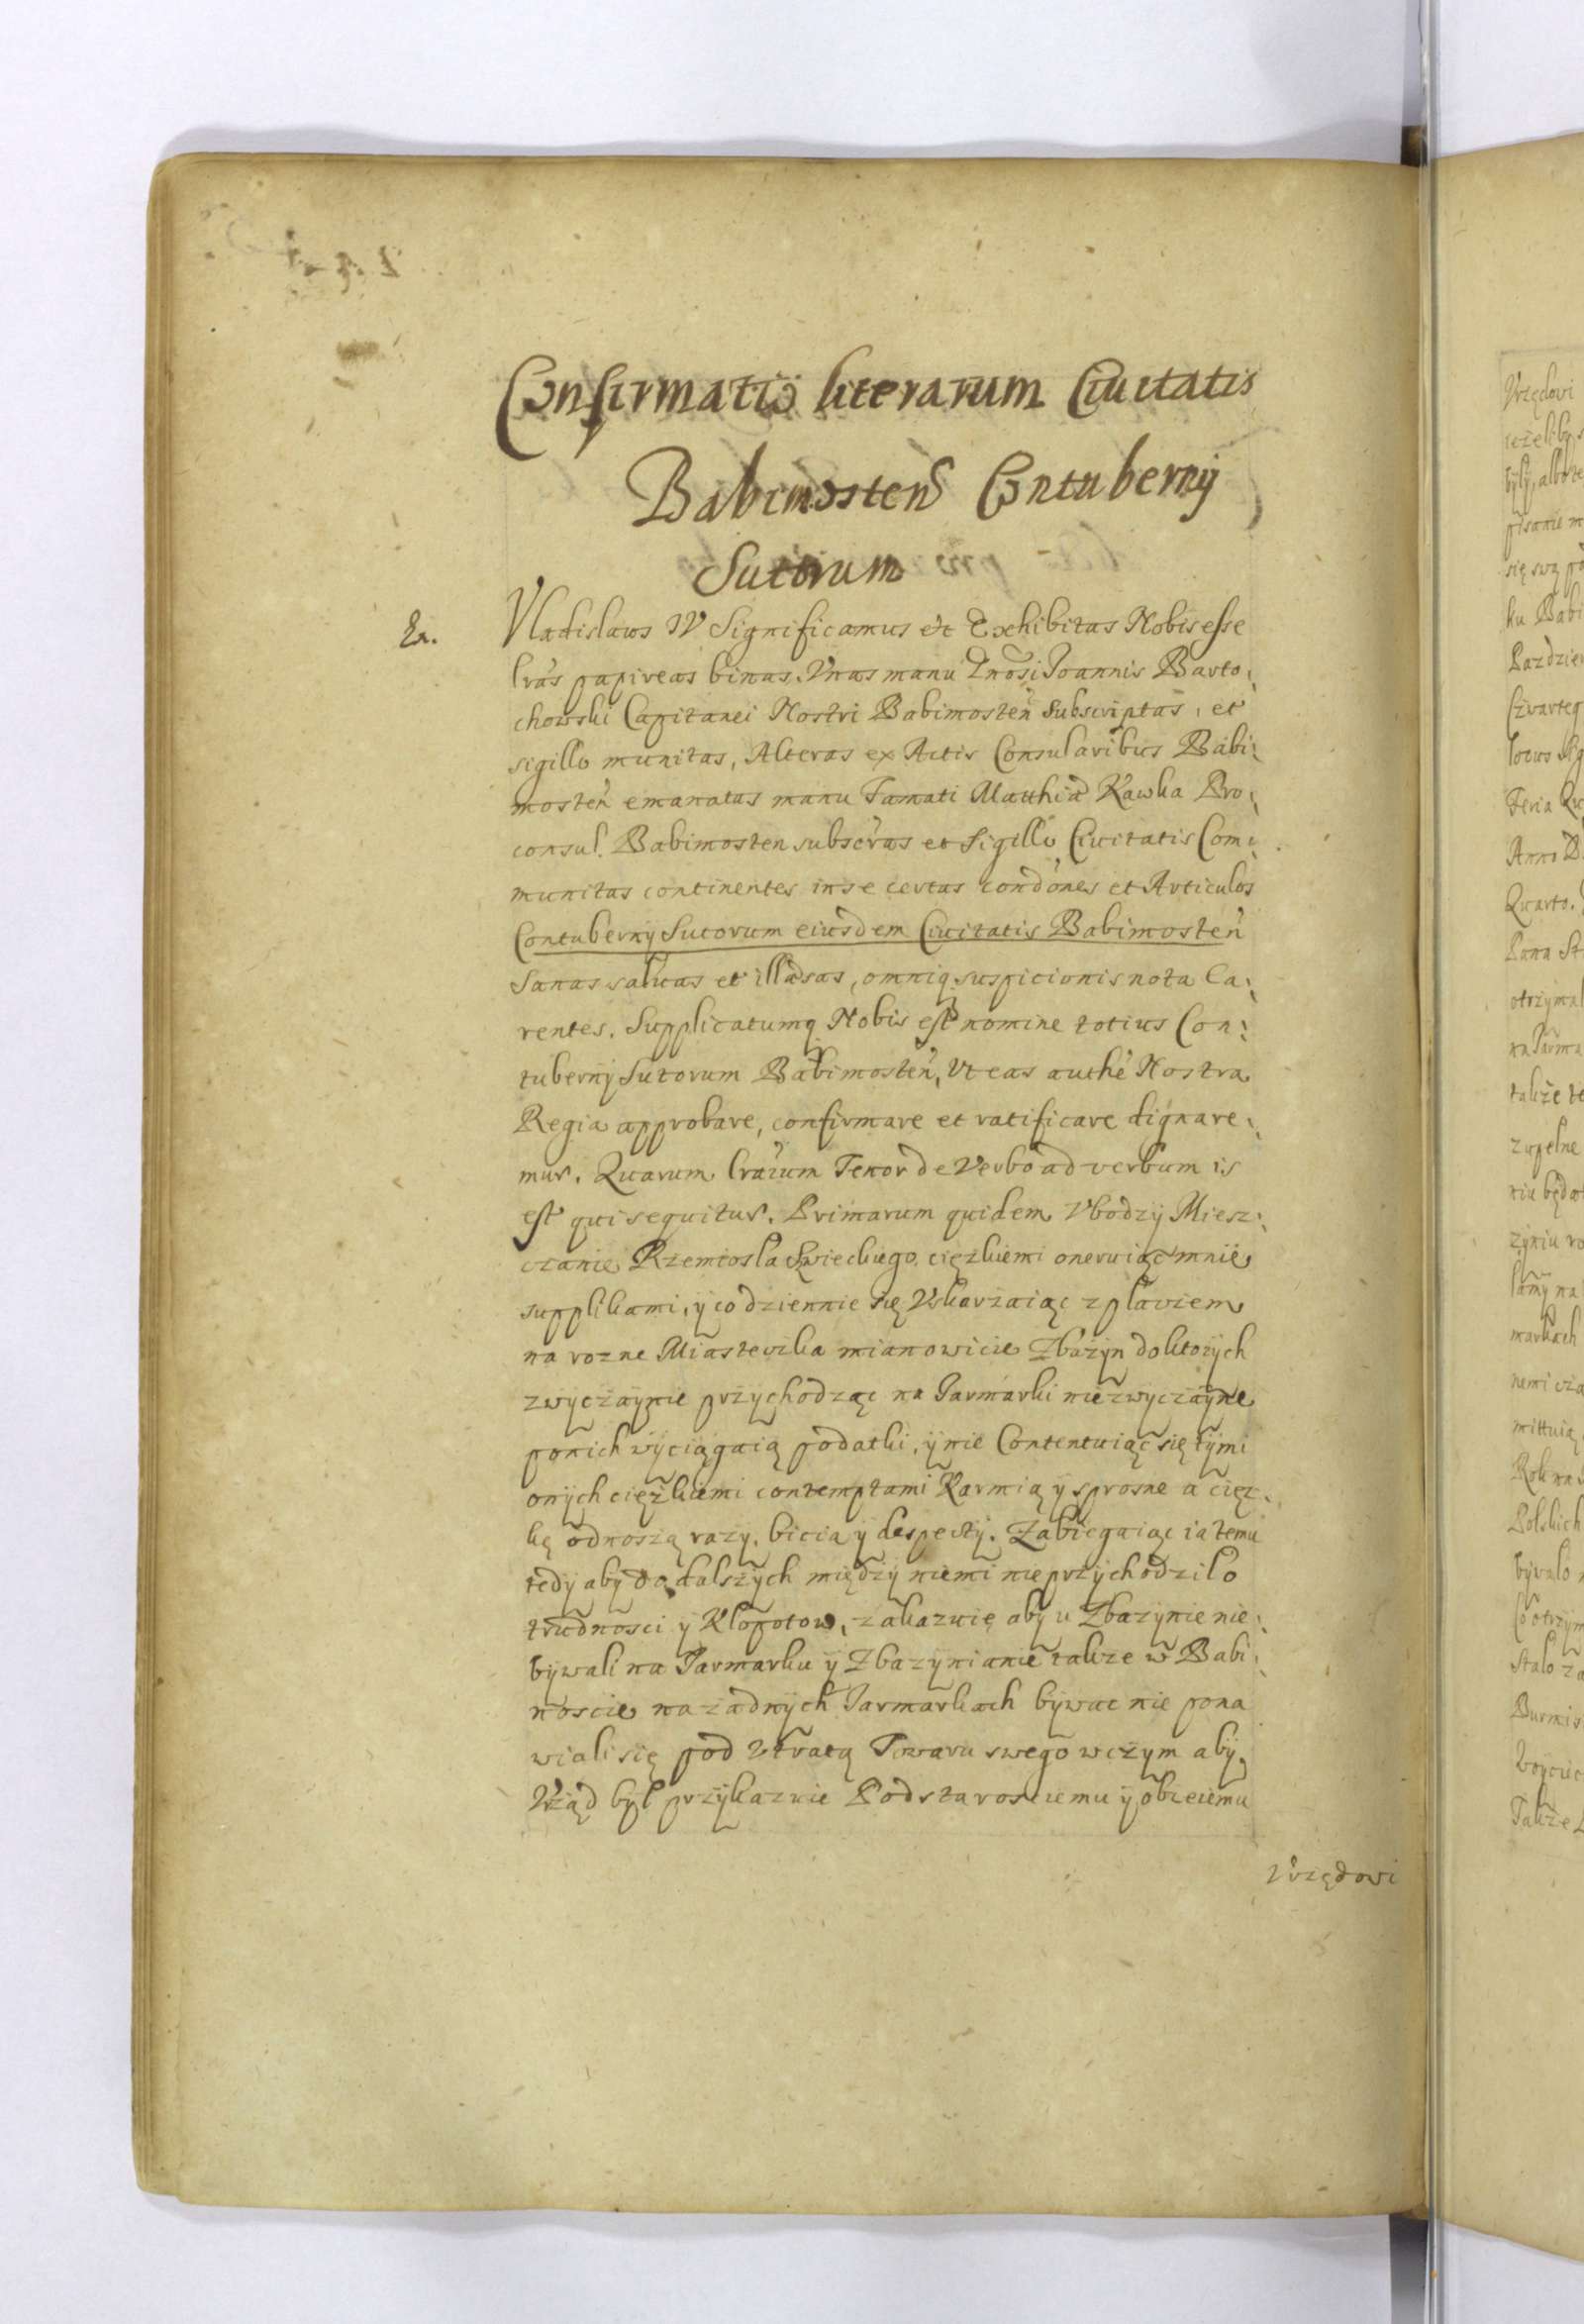 Confirmatio literarum Ciuitatis
Babimosten Contubernÿ
Sutorum
Ex. Vladislaus IV Significamus etc Exhibitas Nobis esse
lras papireas binas. Vnas manu Gnosi Joannis Barto:
chowski Capitanei Nostri Babimosten subscriptas, et
sigillo munitas, Alteras ex Actis Consularibus Babi:
mosten emanatas manu Famati Matthia Kawka Pro:
consul. Babimosten subscras et sigillo Ciuitatis Com:
munitas continentes in se certas condones et Articulos
Contubernÿ Sutorum eiusdem Ciuitatis Babimosten
sanas saluas et illæsas, omniq. suspicionis nota Ca:
rentes. Supplicatumq Nobis est nomine totius Con:
tubernÿ Sutorum Babimosten, Vt eas authe Nostra
Regia approbare, confirmare et ratificare dignare:
mur. Quarum lrarum Tenor de Verbo ad verbum is
est qui sequitur. Primarum quidem Vbodzÿ Miesz:
czanie Rzemiosla Szwieckiego cięzkiemi oneruiąc mnie
supplikami, ÿ codziennie się Vskarzaiąc z placzem
na rozne Miasteczka mianowicie Zbązyn do ktorÿch
zwÿczaÿnie przÿchodząc na Jarmarki niezwÿczaÿne
ponich wÿciągaią podatki, ÿ nie Contentuiąc się tÿmi
onÿch cięzkiemi contemptami Karmią ÿ sprosne a cięz:
kę odnoszą razÿ, bicia ÿ despectÿ. Zabiegaiąc ia temu
tedÿ abÿ do dalszÿch międzÿ niemi nie przÿchodzilo
trudnosci ÿ Klopotow, zakazuię abÿ u Zbazÿnie nie:
bÿwali na Jarmarku ÿ Zbazÿnianie takze w Babi:
moscie na zadnÿch Jarmarkach bÿwac nie pona
wiali się pod Vtratą Towaru swego w czÿm abÿ
Vrząd bÿl przÿkazuie Podstarosciemu ÿ obiciemu
Vrzędowi